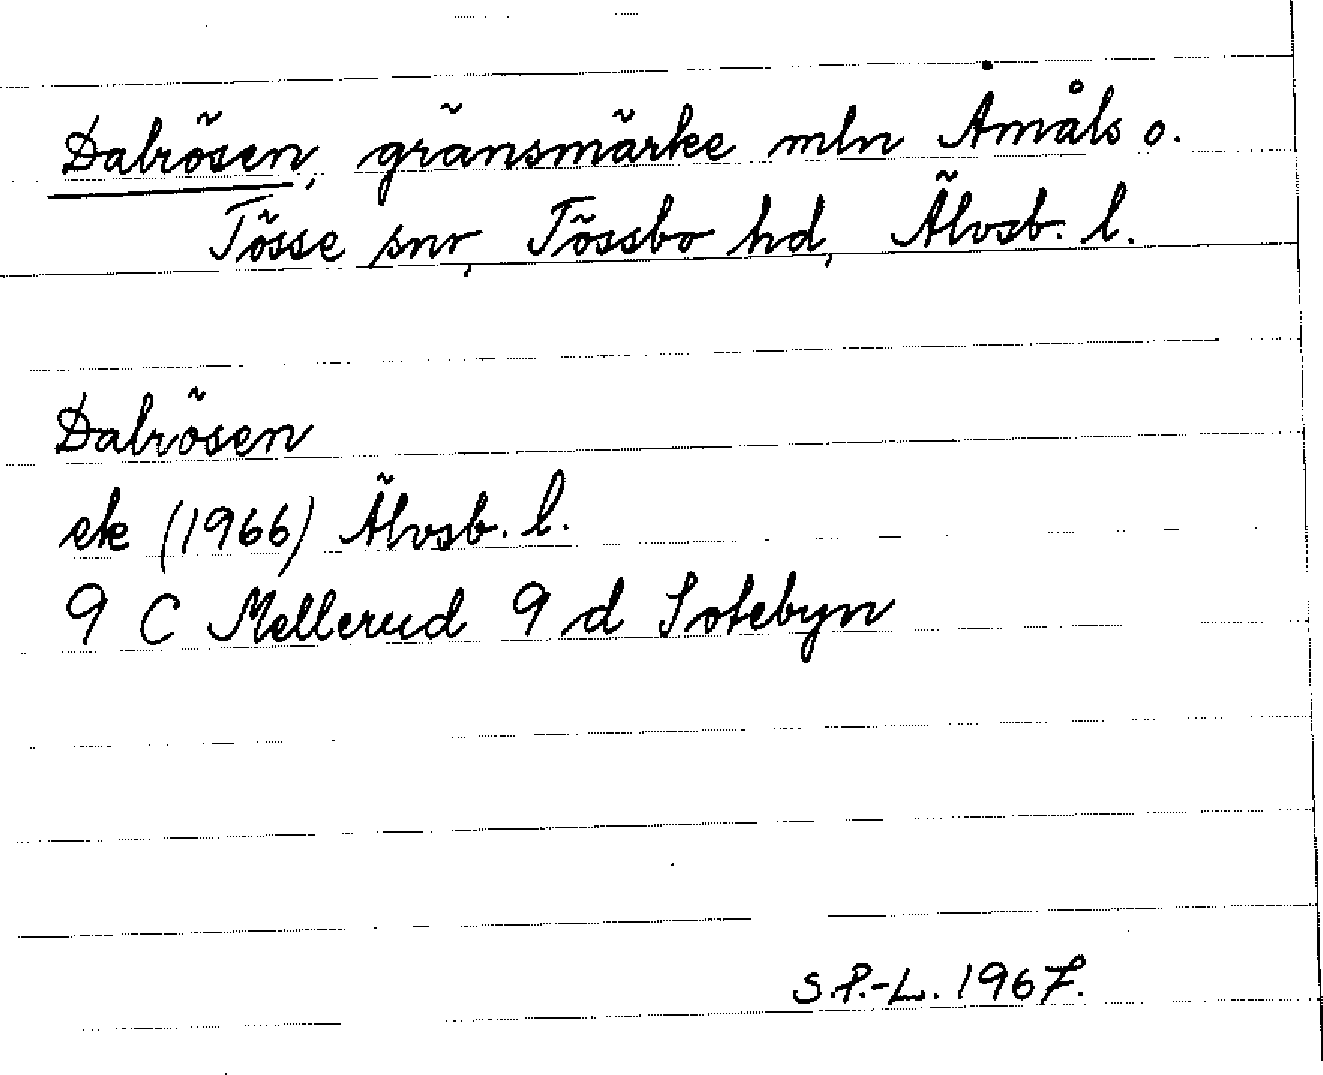 Dalrösen, gränsmärke mln Åmåls o.
Tösse snr, Tössbo hd, Älvsb. l.
Dalrösen
ek (1966) Älvsb. l.
9 C Mellerud 9 d Sotebyn
S.P.-L. 1967.